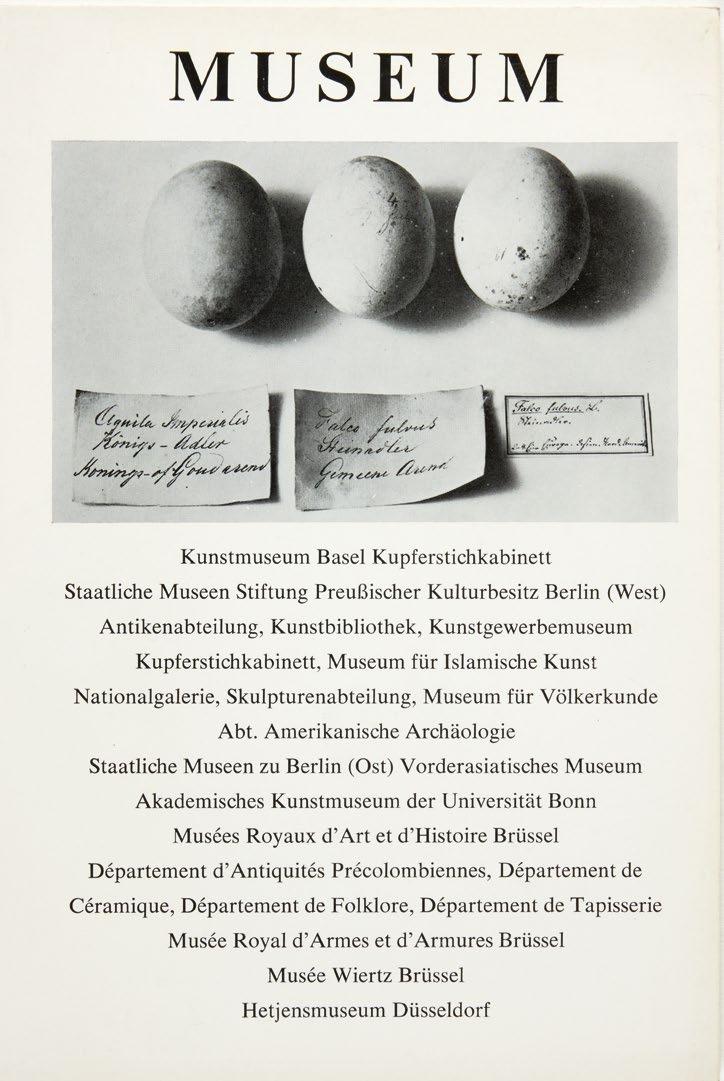 MUSEUM
Aquila Imperialis
Königs-Adler
Konings-of Goudarend
Falco fulvus
Steinadler
Gemeene Arend
Falco fulvus. L.
Steinadler.
Kunstmuseum Basel Kupferstichkabinett
Staatliche Museen Stiftung Preußischer Kulturbesitz Berlin (West)
Antikenabteilung, Kunstbibliothek, Kunstgewerbemuseum
Kupferstichkabinett, Museum für Islamische Kunst
Nationalgalerie, Skulpturenabteilung, Museum für Völkerkunde
Abt. Amerikanische Archäologie
Staatliche Museen zu Berlin (Ost) Vorderasiatisches Museum
Akademisches Kunstmuseum der Universität Bonn
Musées Royaux d’Art et d’Histoire Brüssel
Département d’Antiquités Précolombiennes, Département de
Céramique, Département de Folklore, Département de Tapisserie
Musée Royal d’Armes et d’Armures Brüssel
Musée Wiertz Brüssel
Hetjensmuseum Düsseldorf